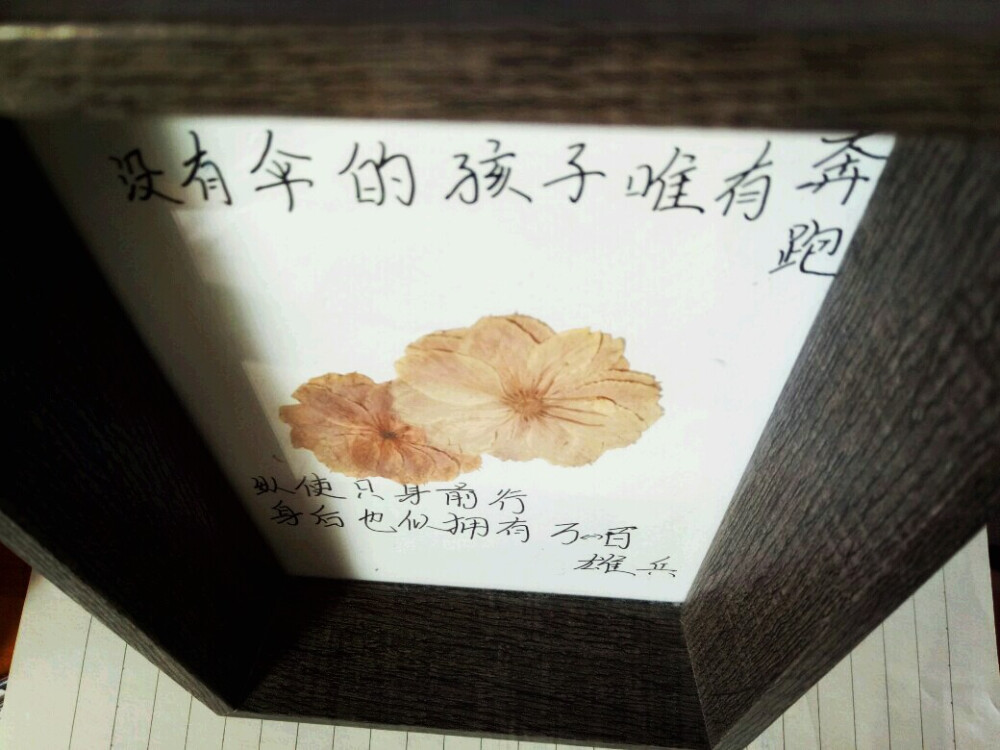 没有伞的孩子唯有奔
跑
纵使只身前行
身后也似拥有万百
雄兵